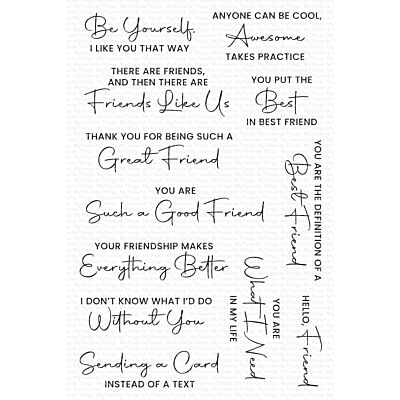 Be Yourself.
I LIKE YOU THAT WAY
ANYONE CAN BE COOL,
Awesome
TAKES PRACTICE
THERE ARE FRIENDS,
AND THEN THERE ARE
Friends Like Us
YOU PUT THE
Best
IN BEST FRIEND
THANK YOU FOR BEING SUCH A
Great Friend
YOU ARE THE DEFINITION OF A
Best Friend
YOU ARE
Such a Good Friend
YOUR FRIENDSHIP MAKES
Everything Better
YOU ARE
What I Need
IN MY LIFE
HELLO,
Friend
I DON'T KNOW WHAT I'D DO
Without You
Sending a Card
INSTEAD OF A TEXT